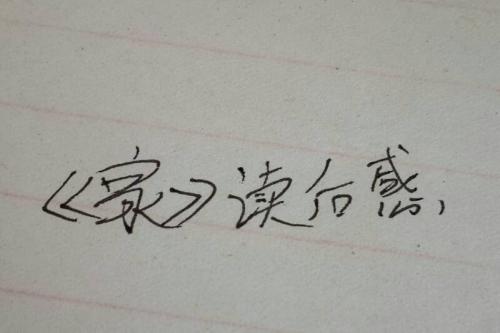 《家》读后感